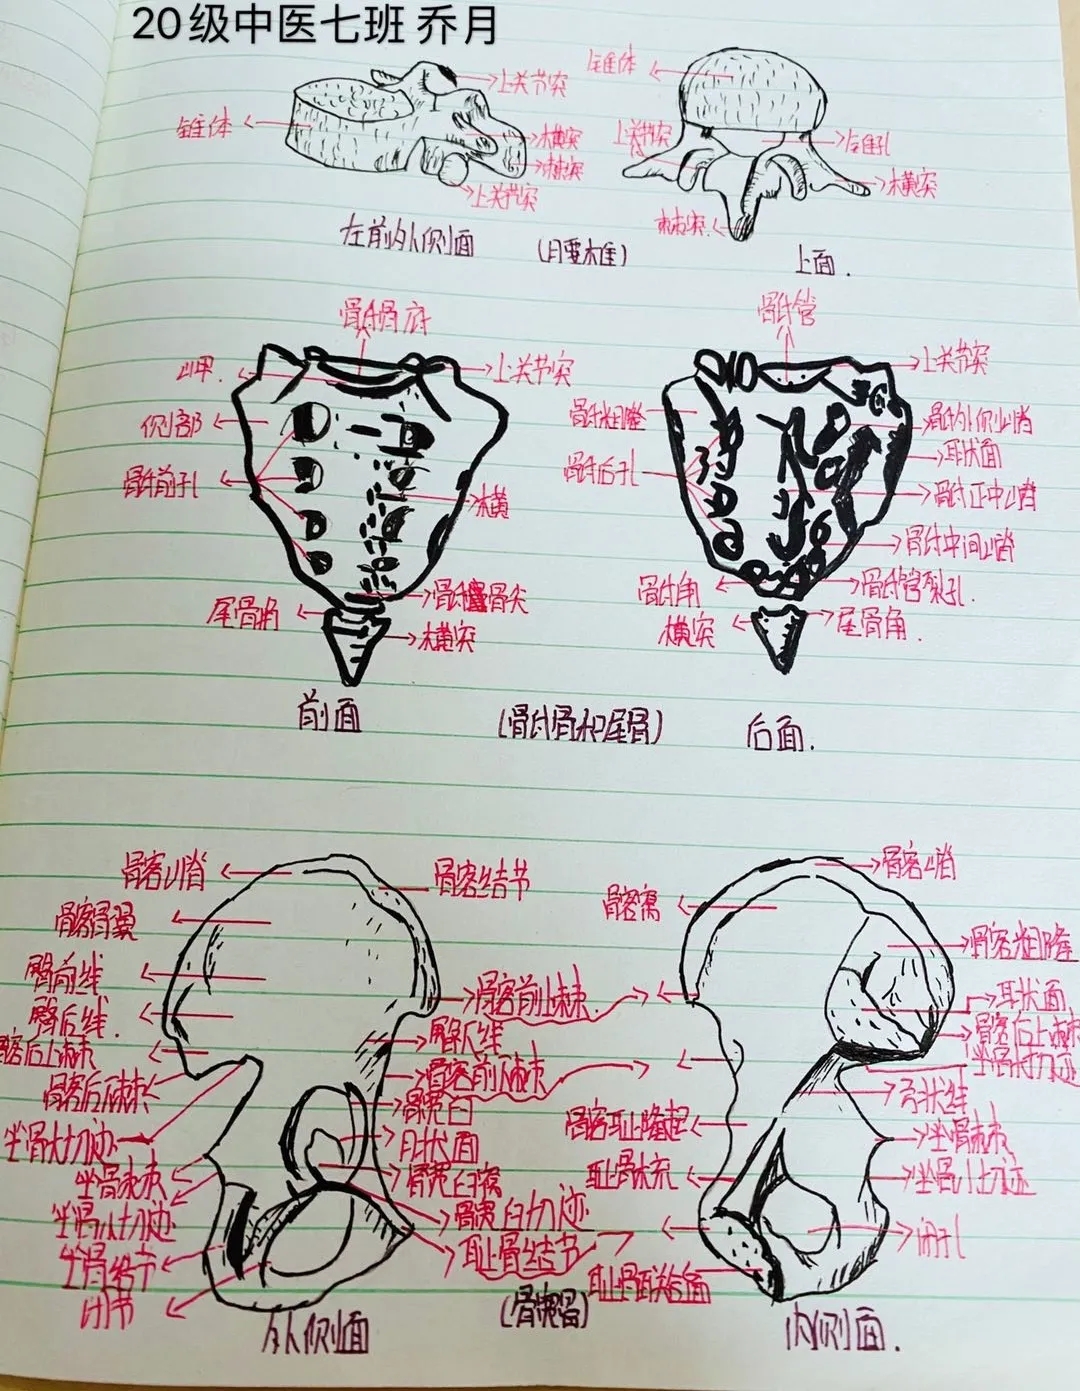 20级中医七班 乔月
上关节突
锥体
横突
棘突
上关节突
左前外侧面
(腰椎)
锥体
上关节突
后椎孔
横突
棘突
上面.
骶骨底
岬
上关节突
侧部
骶前孔
横
尾骨角
骨尖
横突
前面
(骶骨和尾骨)
骶管
上关节突
骶粗隆
骶外侧嵴
耳状面
骶后孔
骶正中嵴
骶中间嵴
骶角
骶管裂孔.
横突
尾骨角.
后面.
髂嵴
髂结节
髂骨翼
臀前线
臀后线.
髂后上棘
髂后下棘
坐骨大切迹
坐骨棘
坐骨小切迹
坐骨结节
闭节
髂前上棘
臀下线
髂前下棘
髋臼
月状面
髋臼窝
髋臼切迹
耻骨结节
外侧面
(髋骨)
髂嵴
髂窝
髂粗隆
耳状面
髂后上棘
坐骨大切迹
弓状线
髂耻隆起
坐骨棘
耻骨梳
坐骨小切迹
闭孔
耻骨联合面
内侧面.